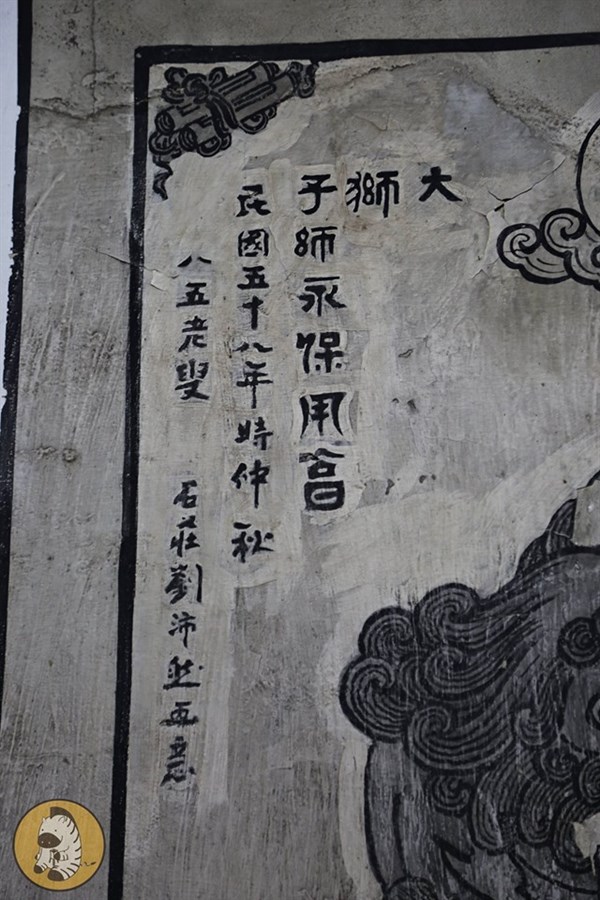 大
獅
子師永保用亯
民國五十八年時仲秋
八五老叟 石莊劉沛然